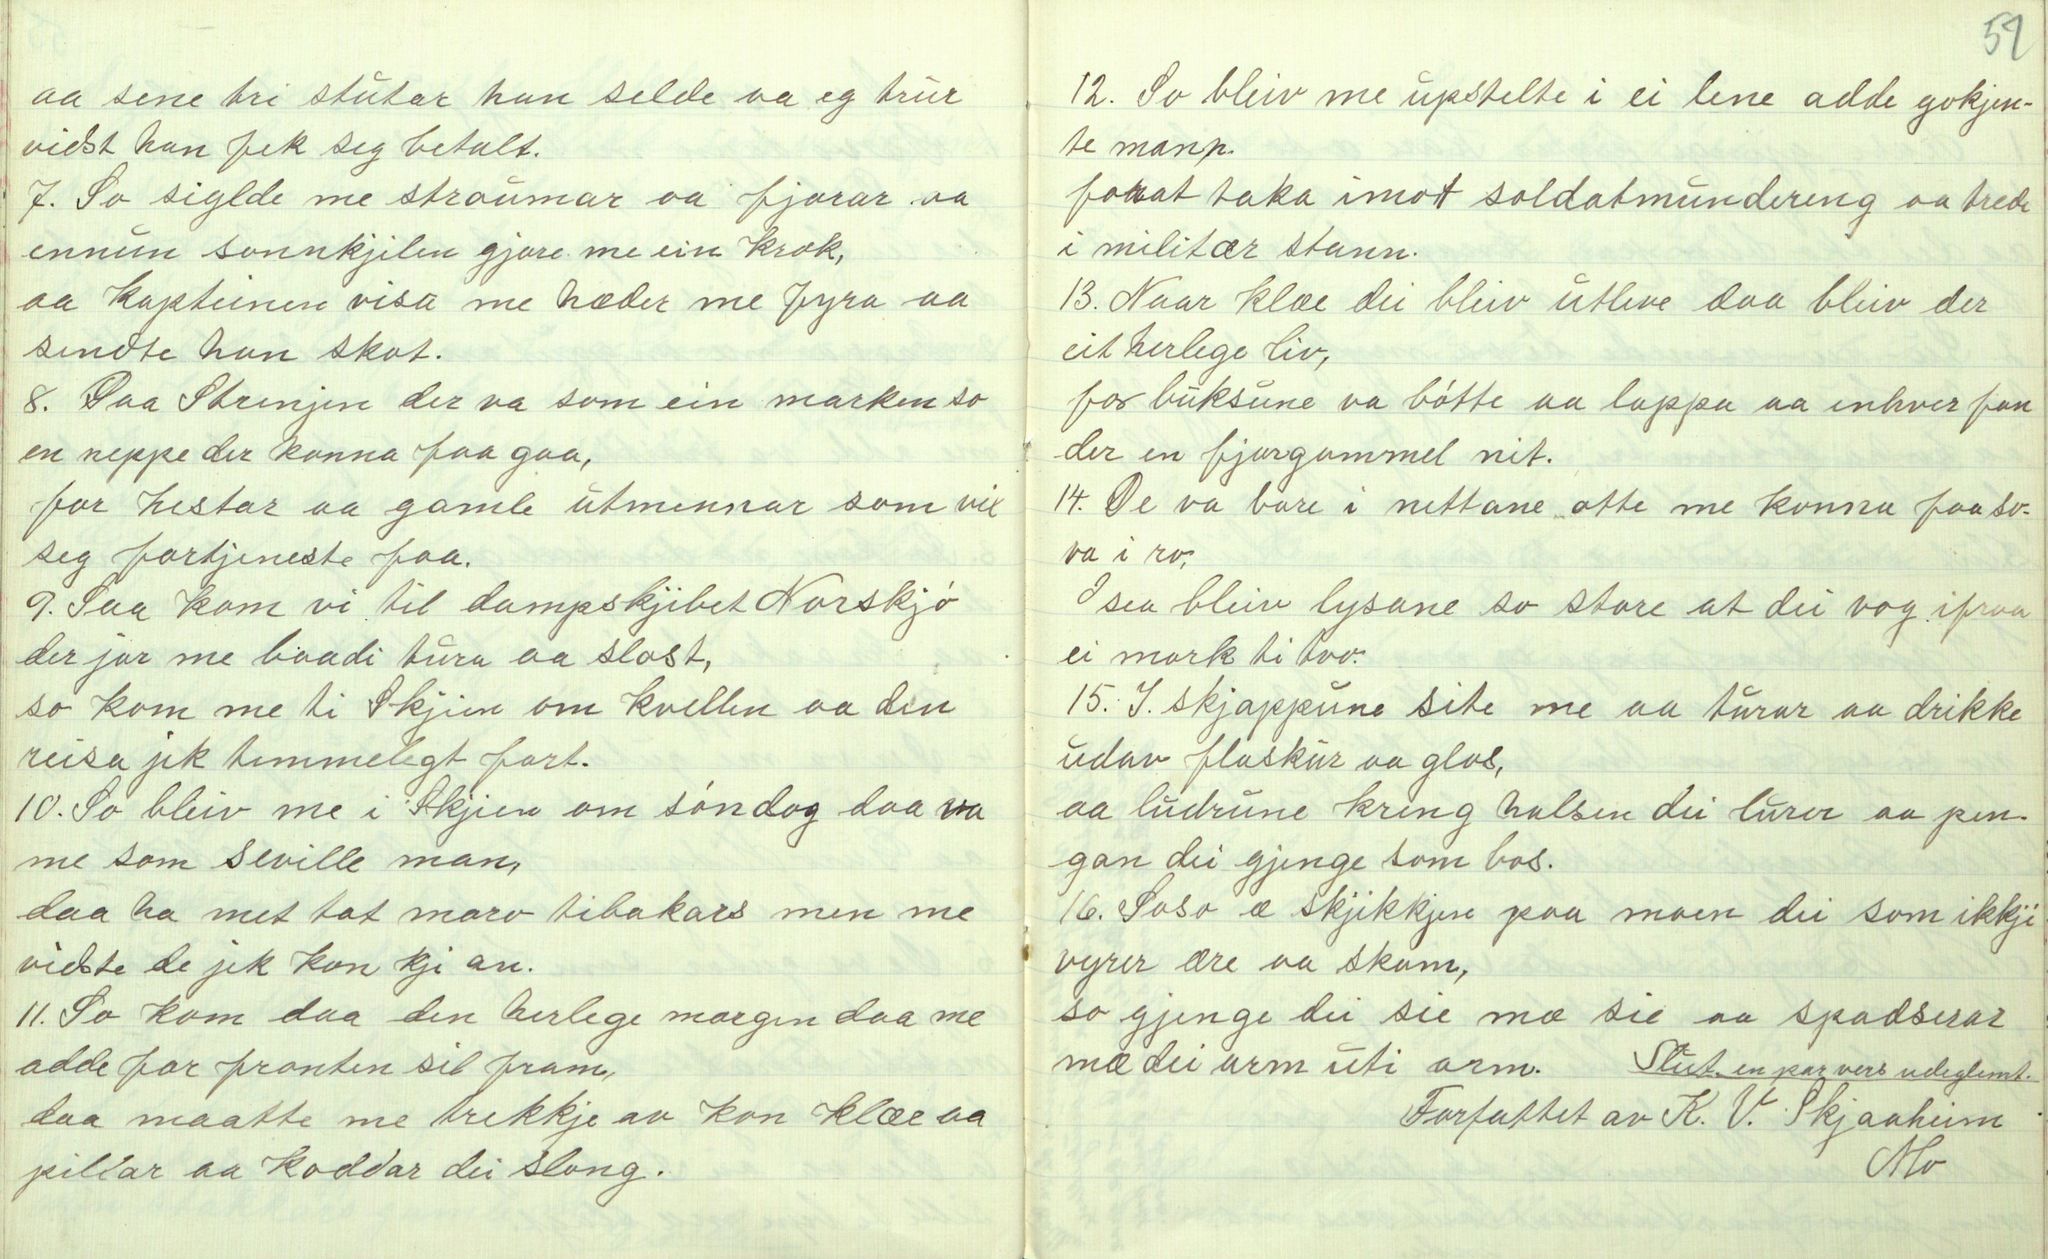 aa sene tri stutar han selde aa eg trur
vidst han fek seg betalt.
7. So siglde me straumar aa fjorar aa
ennun sonnkjilen gjore me ein krok,
aa kapteinen visa me hæder me fyra aa
sendte han skot.
8. Paa Strenjen der va som ein marken so
en neppe der konna faa gaa,
for hestar aa gamle utmennar som vil
seg fortjeneste faa.
9. Saa kom vi til dampskjibet Norskjó
der jor me baadi tura aa slost,
so kom me ti Skjien om kvellen aa den
reisa jik temmelegt fort.
10. So bleiv me i Skjien om sóndog daa va
me som seville man,
daa ha met tat marv tibakars men me
vidste de jek kon kji an.
11. So kom daa den herlege morgen daa me
adde for fronten sil fram,
daa maatte me trekkje av kon klæe aa
pillar aa koddar dei slong.
59
12. So bleiv me upstelte i ei lene adde gokjen-
te mann.
for at taka imot soldatmundereng aa trede
i militær stann.
13. Naar klæe dei bleiv utleve daa bleiv der
eit herlege liv,
for buksune va bótte aa lappa aa enhver fan
der en fjorgammel nit.
14. De va bare i nettane atte me konna faa so-
va i ro,
I sea bleiv lysane so store at dei vog ifraa
ei mork ti tvo.
15. I. skjappune site me aa turar aa drikke
udav flaskur aa glas,
aa ludrune kreng halsen dei lurer aa pen-
gan dei gjenge som bos.
16. Soso æ skjikkjen paa moen dei som ikkji
vyrer ære aa skam,
so gjenge dei sie mæ sie aa spadserar
mæ dei arm uti arm. Slut. en par vers udeglemt.
Forfattet av K. V. Skjaaheim
Mo